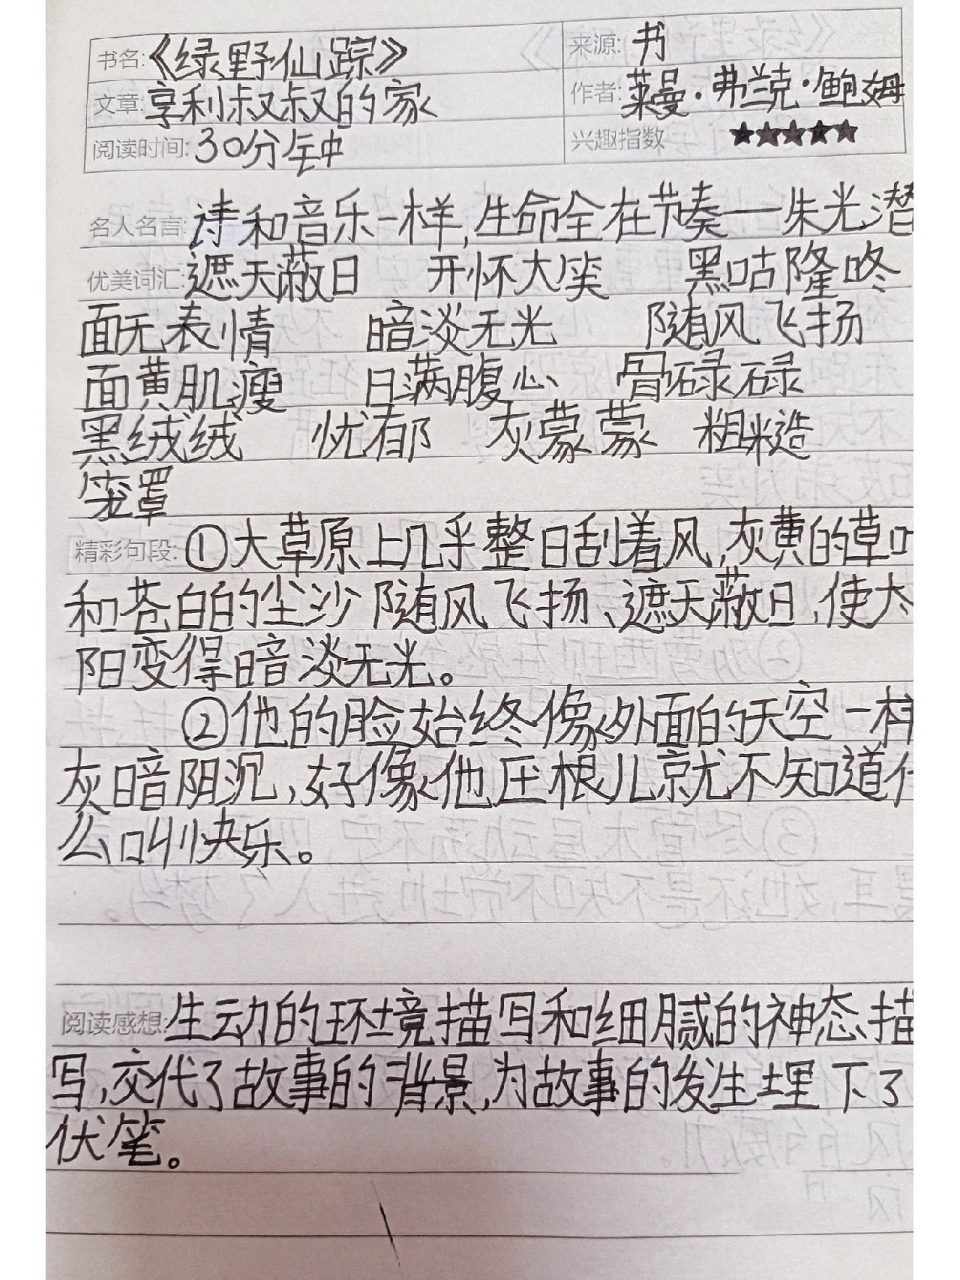 书名:《绿野仙踪》 来源:书
文章:亨利叔叔的家 作者:莱曼·弗兰克·鲍姆
阅读时间:30分钟 兴趣指数 ★★★★★
名人名言:诗和音乐一样,生命全在节奏——朱光潜
优美词汇:遮天蔽日 开怀大笑 黑咕隆咚
面无表情 暗淡无光 随风飞扬
面黄肌瘦 日满腹心 骨碌碌
黑绒绒 忧郁 灰蒙蒙 粗糙
笼罩
精彩句段:①大草原上几乎整日刮着风,灰黄的草叶
和苍白的尘沙随风飞扬、遮天蔽日,使太
阳变得暗淡无光。
②他的脸始终像外面的天空一样
灰暗阴沉,好像他压根儿就不知道什
么叫快乐。
阅读感想:生动的环境描写和细腻的神态描
写,交代了故事的背景,为故事的发生埋下了
伏笔。